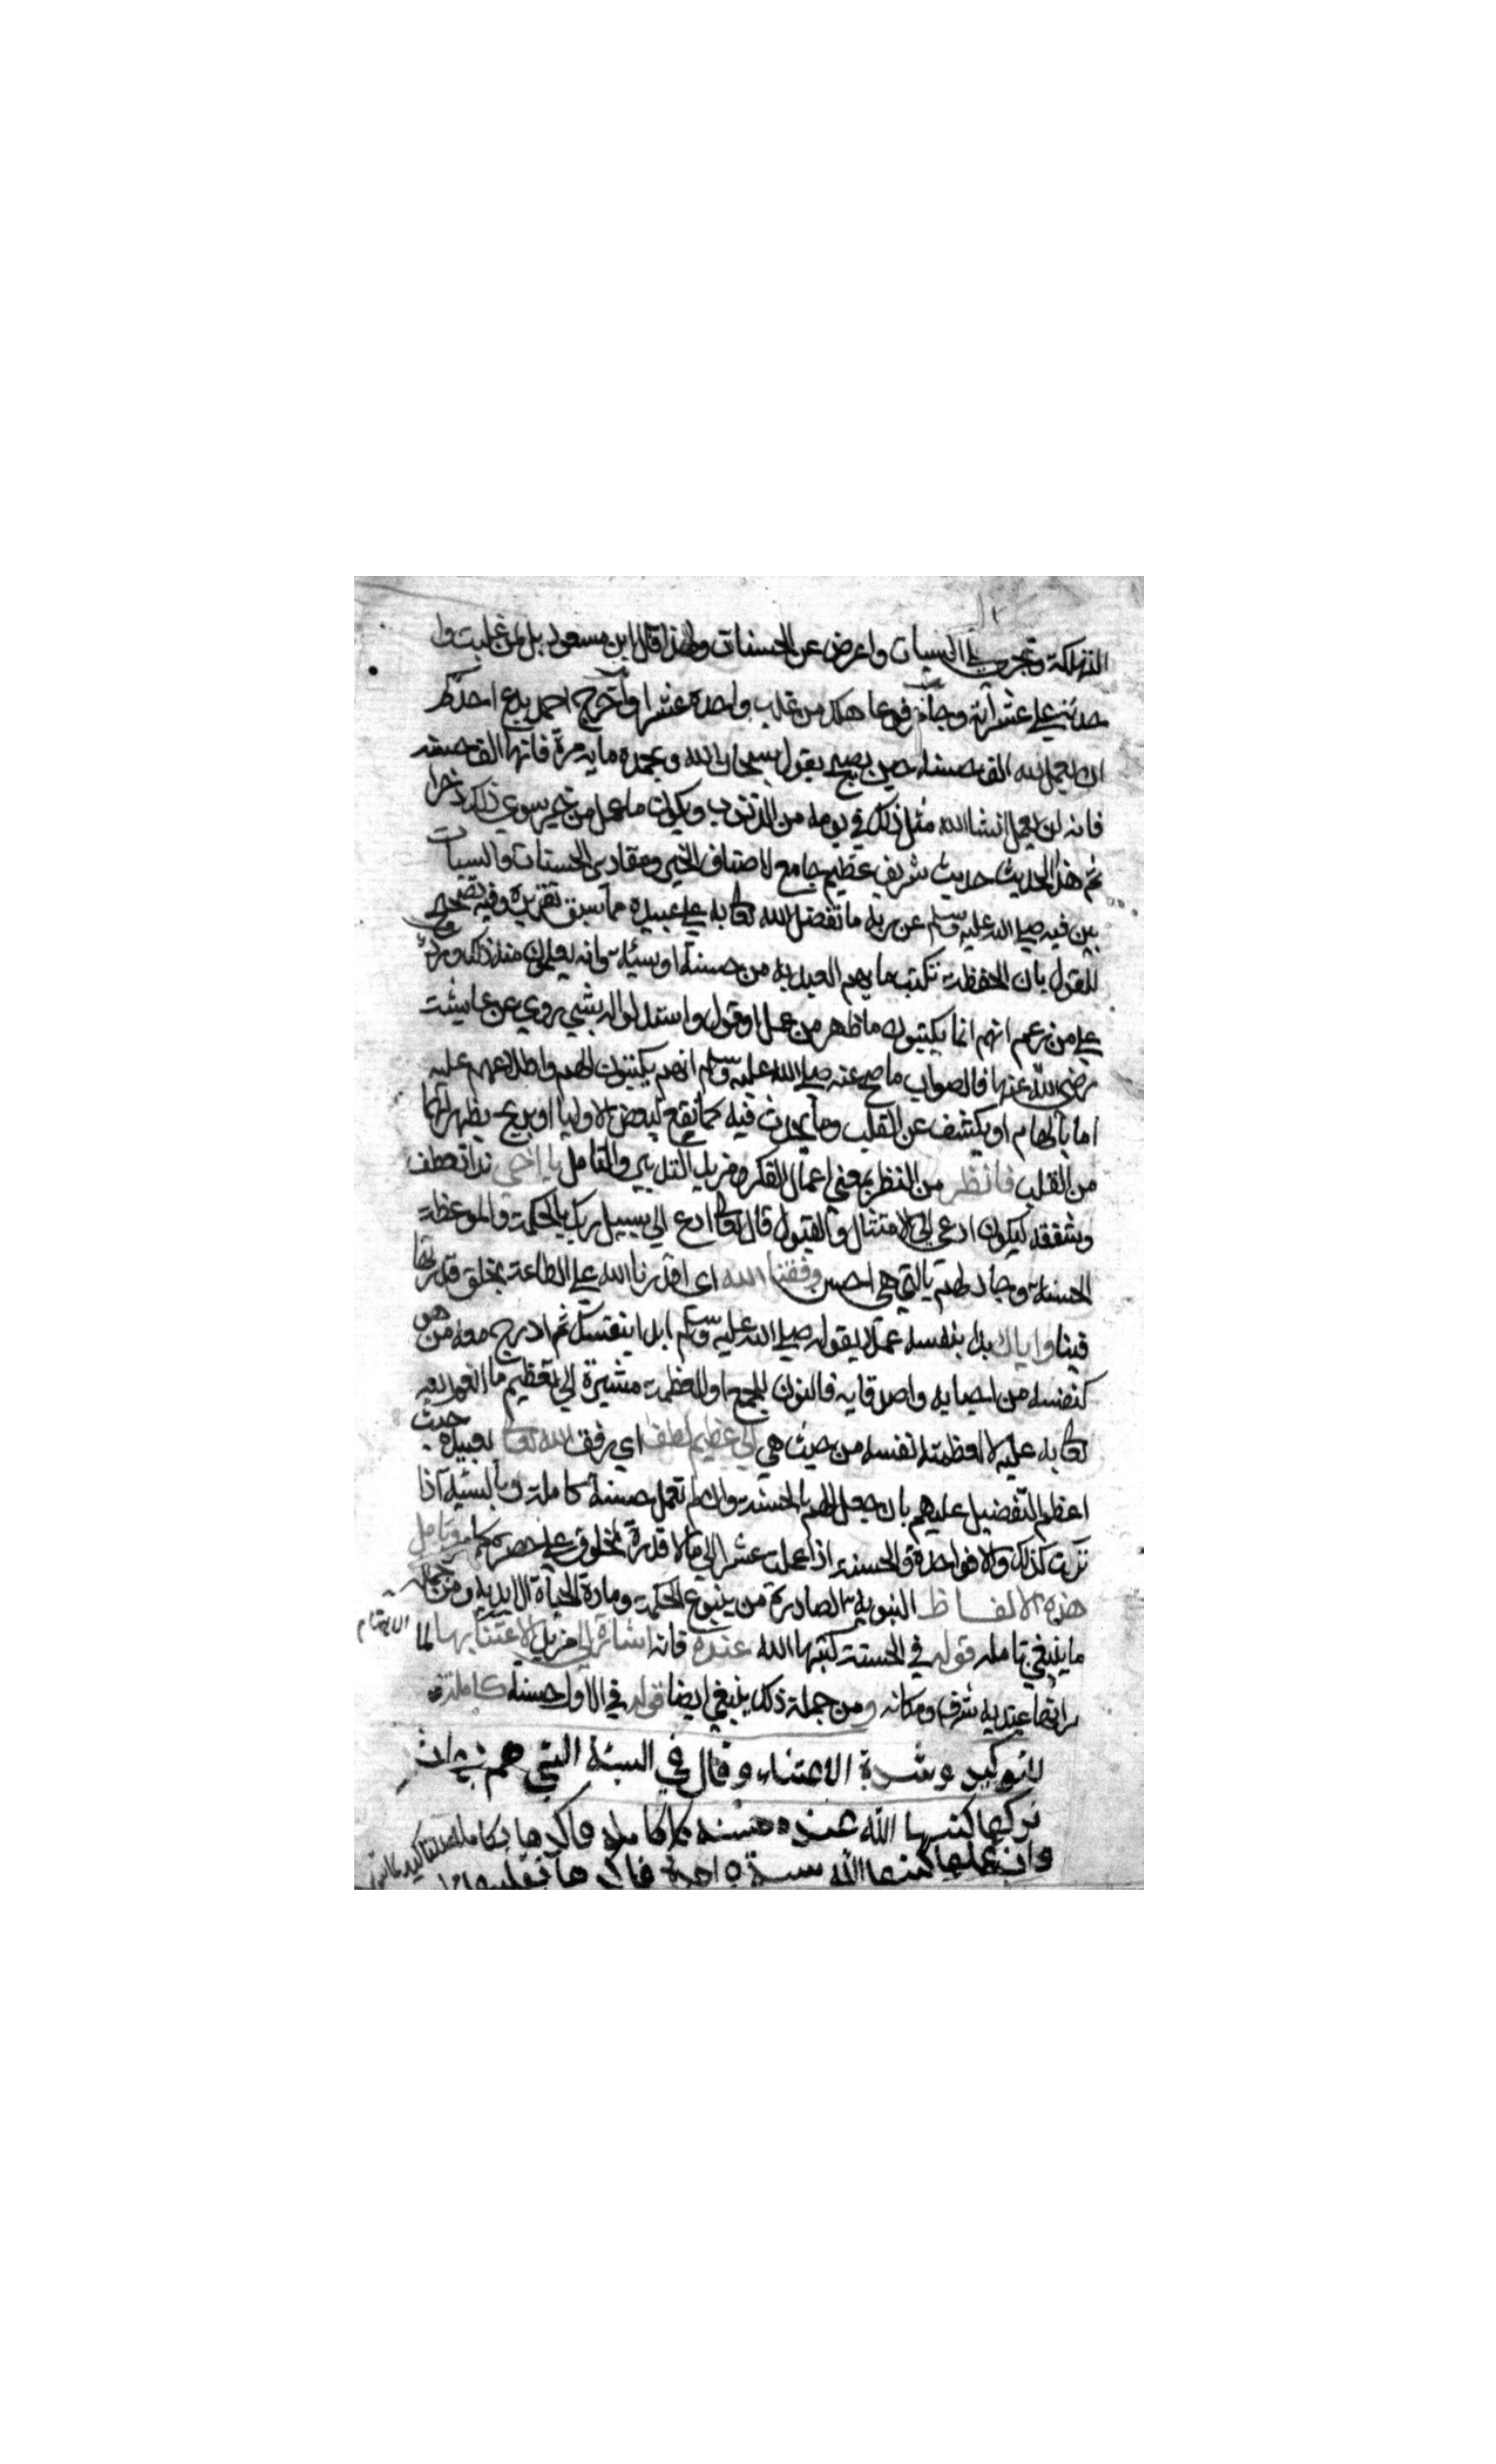 التهلكة وتجري على السيات واعرض عن الحسنات ولهذا قال ابن مسعود بل لمن غلبت وا
على عشراته وجاء مرفوعا هلك من غلب واحده عشرا واخرج احمد يدع احدكم
ان يعمل لله الف حسنه حين يصبح يقول سبحان الله وبحمده مايه مرة فانها الف حسنه
فانه لن يعمل انشا الله مثل ذلك في يومه من الذنوب ويكون ما عمل من خير سوي ذلك وافرا
ثم هذا الحديث حديث شريف عظيم جامع لاصناف الخير ومقادير الحسنات والسيات
بين فيه صلى الله عليه وسلم عن ربه ما تفضل الله تعالى به على عبيده مما سبق تقريره وفيه تصحيح
للقول بان الحفظة تكتب ما يهم العبد به من حسنة او سيئة وانه يعلمون منه ذلك ورد
على من زعم انهم انما يكتبون ما ظهر من عمل او قول واستدلوا له بشي روي عن عايشت
رضى الله عنها فالصواب ما صح عنه صلى الله عليه وسلم انهم يكتبون الهم واطلاعهم عليه
اما بالهام او يكشف عن القلب وما يحدث فيه كما يقع لبعض الاوليا او بريح يظهر لهما
من القلب فانظر من النظر بمعني اعمال الفكر ومزيد التدبير والتامل يا اخي ندا تعطف
وشفقه ليكون ادعى الى الامتثال والقبول قال تعالى ادع الى سبيل ربك بالحكمة والموعظة
الحسنة وجادلهم بالتي هي احسن وفقنا الله اى اقدرنا الله على الطاعة بخلق قدرتها
فينا واياك بدا بنفسه عملا بقوله صلى الله عليه وسلم ابدا بنفسك ثم ادرج معه من هو
كنفسه من احبابه واصدقايه فالنون للجمع او للعظمة مشيرة الى تعظيم ما انعم الله
تعالى به عليه لا لعظمته لنفسه من حيث هي الى عظيم لطف اي رفق الله تعالى بعبيده حيث
اعظم التفضيل عليهم بان جعل الهم بالحسنة وان لم تعمل حسنة كاملة وبالسيئه اذا
تركت كذلك والا فواحدة والحسنه اذا عملت عشرا الى ما لا قدرة لمخلوق على حصره كما مر وتامل
هذه الالفاظ النبوية الصادرة من ينبوع الحكمة ومادة الحياة الابدية ومن جملة
ما ينبغي تامله قوله في الحسنة كتبها الله عنده فانه اشارة الى مزيد الاعتنا بها لما
الاهتمام
ومن جملة ذلك ينبغي ايضا قوله في الاول حسنة كاملة
للتوكيد وشدة الاعتناء وقال في السيئة التي هم بها ثم
تركها كتبها الله عنده حسنة كاملة فاكدها بكاملة
وان عملها كتبها الله سيئة واحدة فاكدها بتقليلها